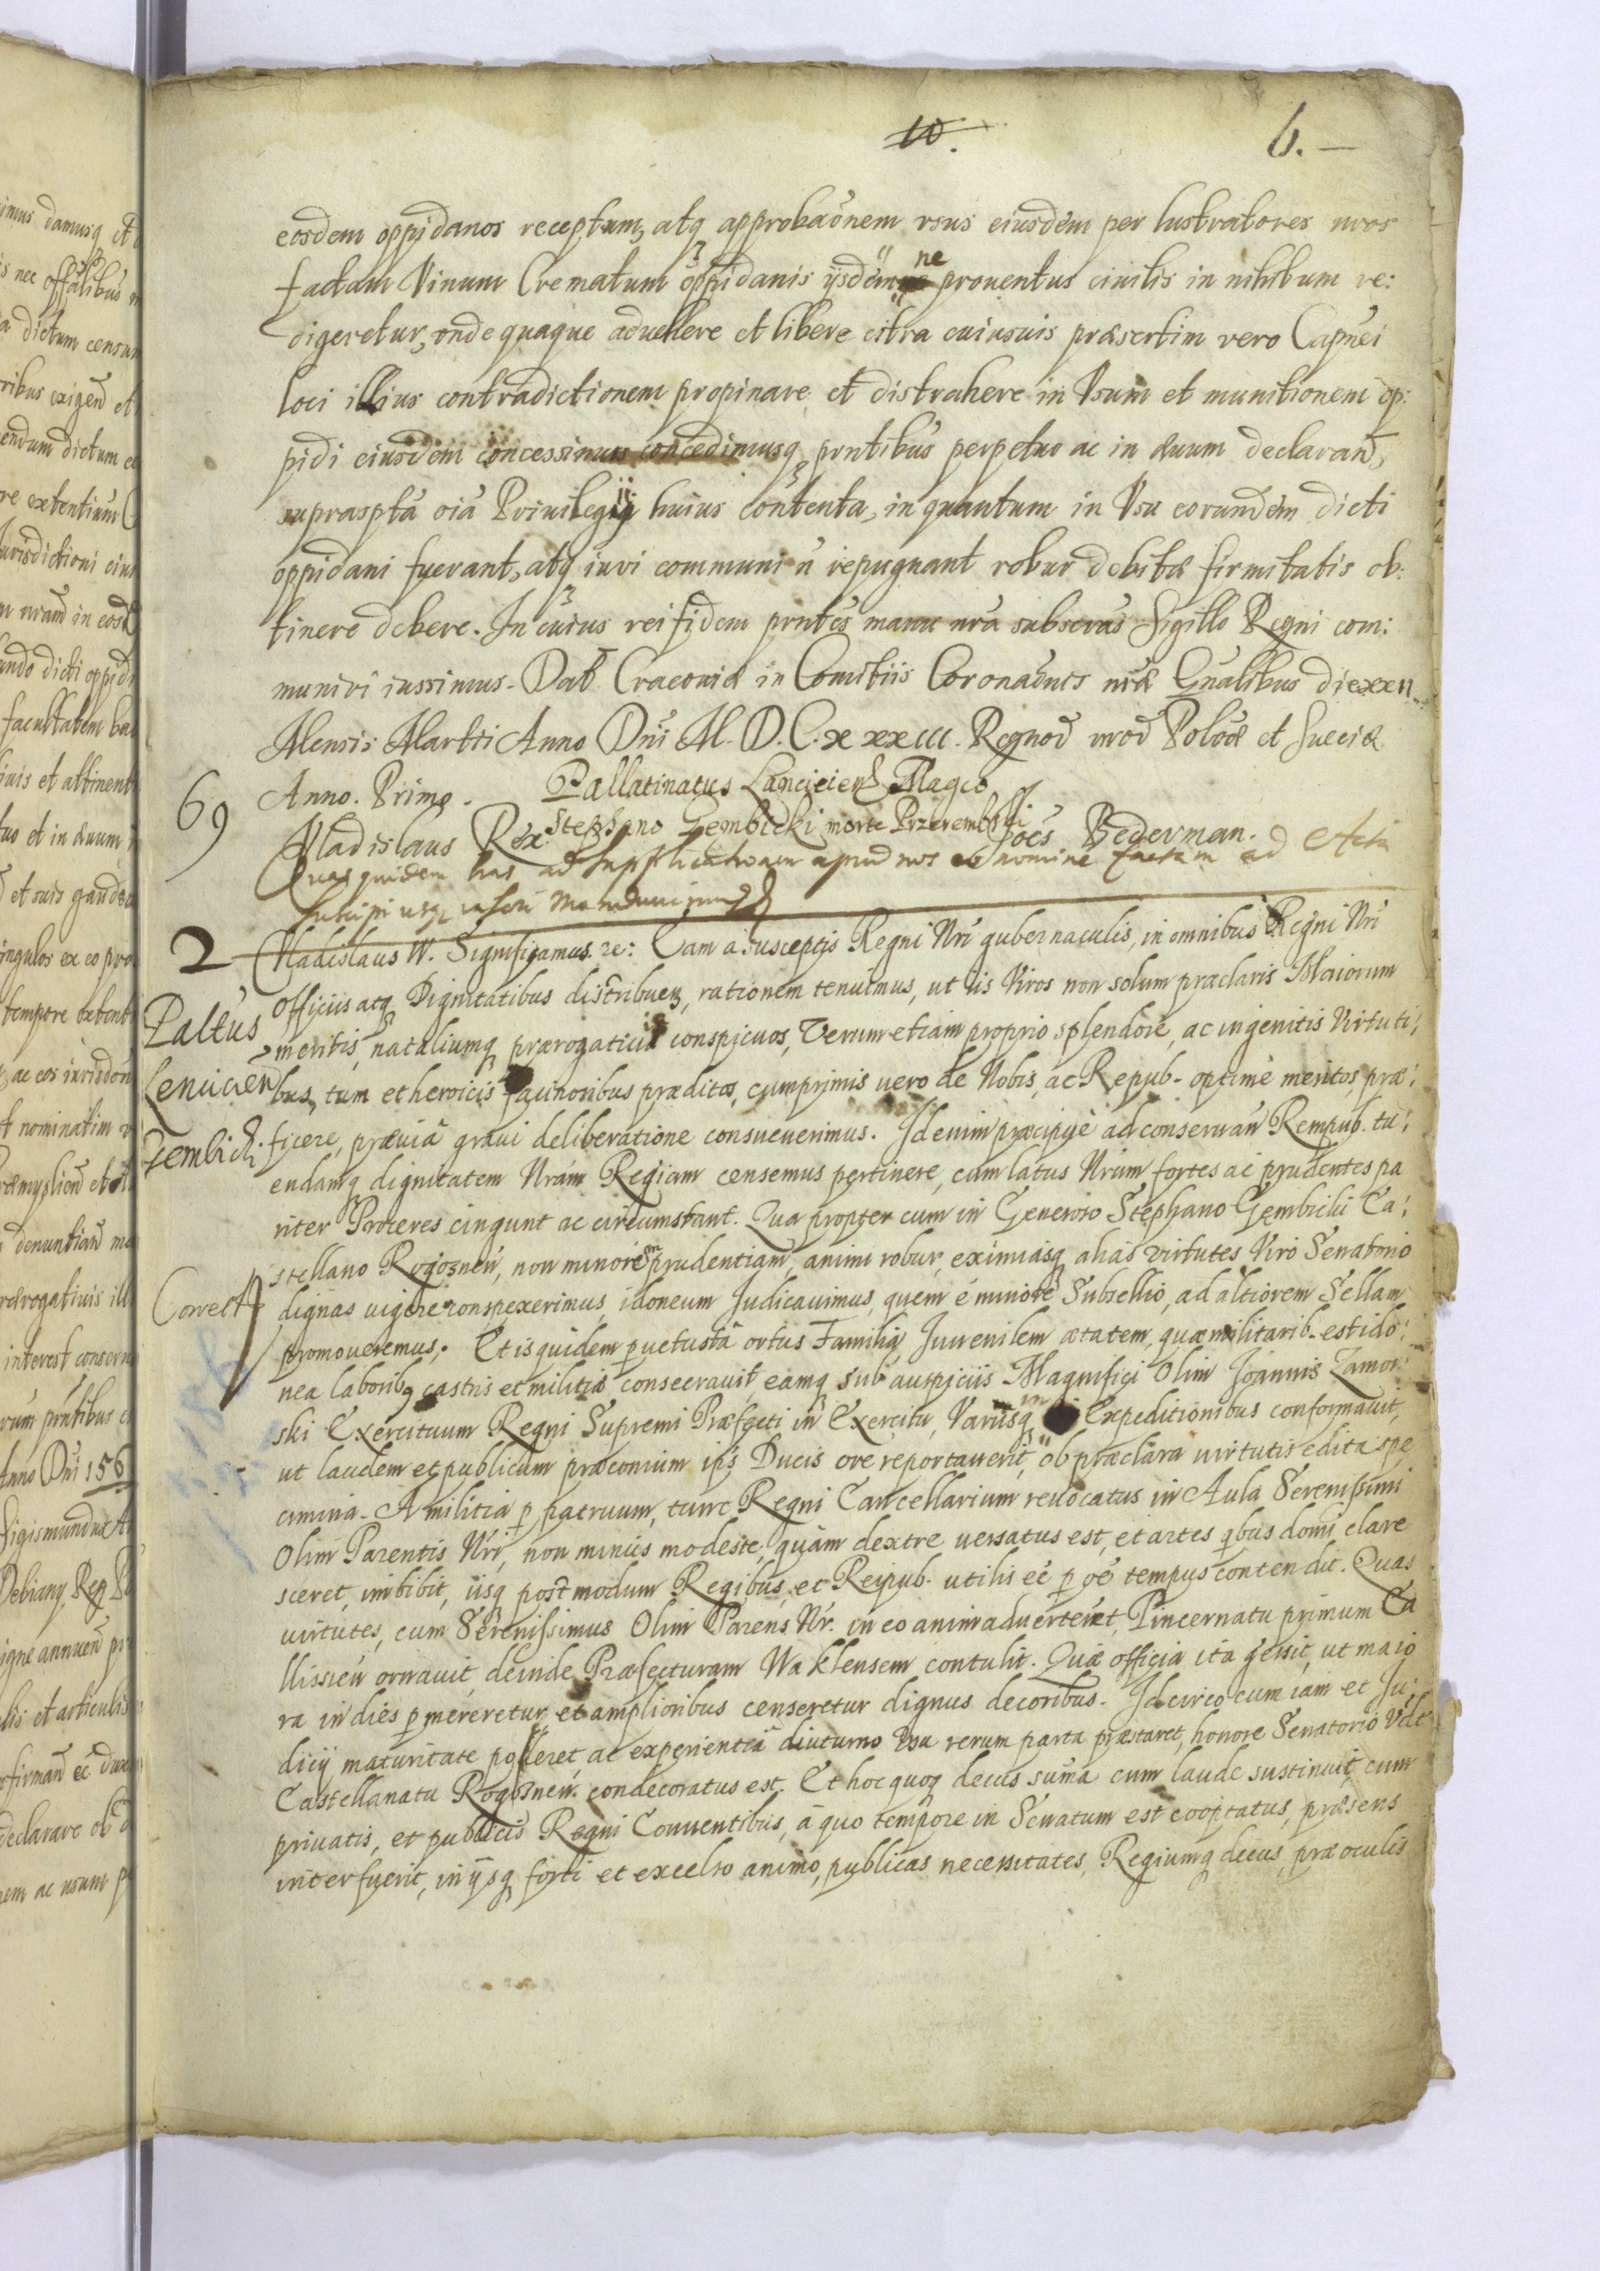 10.
6. —
eosdem oppidanos receptum, atq approbaõnem vsus eiusdem per lustratores nros
factam Vinum Crematum oppidanis ijsdem ne prouentus ciuilis in nihilum re:
digeretur, vnde quaque aduehere et libere citra cuiusuis præsertim vero Capnei
loci illius contradictionem propinare et distrahere in Vsum et munitionem op:
pidi eiusdem concessimus concedimusq pntibus perpetuo ac in æuum declaran̄,
suprasptã oiã Priuilegij huius contenta, in quantum in Vsu eorundem dicti
oppidani fuerant, atq iuri communi ñ repugnant robur debitæ firmitatis ob:
tinere debere. In cuius rei fidem pntes manu nrã subscras Sigillo Regni com:
muniri iussimus. Dat Cracouiæ in Comitiis Coronaõnis nræ Gnalibus die xxii
Mensis Martii Anno Dni M. D. C. xxxiii. Regnoꝝ nroꝝ Poloæ et Sueciæ
69
Anno. Primo.
Pallatinatus Lancicien Magco
Stephano Gembicki morte Przerembski
Vladislaus Rex
Joes Bederman.
Quas quidem has ad supplicationem apud nos eo nomine factam ad Acta
suscipi usq inseri mandauimus
2
Vladislaus IV. Significamus. re: Cum a susceptis Regni Nri gubernaculis, in omnibus Regni Nri
Officiis atq Dignitatibus distribuen, rationem tenuimus, ut iis Viros non solum præclaris Maiorum
Paltus
meritis, nataliumq prærogatiuis conspicuos, Verum etiam proprio splendore, ac ingenitis Virtuti:
Lencicien
bus, tum et heroicis facinoribus præditos, cumprimis uero de Nobis, ac Repub. optime meritos, præ:
Gembicki
ficere, præuiâ graui deliberatione consueuerimus. Id enim præcipue ad conseruan Rempub. tu:
endamq dignitatem Nram Regiam censemus pertinere, cum latus Nrum fortes ac prudentes pa
riter Proceres cingunt ac circumstant. Qua propter cum in Generoso Stephano Gembicki Ca:
stellano Rogosnen, non minorem prudentiam, animi robur, eximiasq alias virtutes Viro Senatorio
Correct
dignas uigere conspexerimus, idoneum Judicauimus, quem é minore Subsellio, ad altiorem Sellam
promoueremus. Et is quidem puetustâ ortus Familiâ, Juuenilem ætatem, quæ militarib. est ido:
nea laborib9 castris et militiæ consecrauit, eamq sub auspiciis Magnifici Olim Joannis Zamoi
ski Exercituum Regni Supremi Præfecti in Exercitu, Variisq in Expeditionibus conformauit,
ut laudem et publicum præconium ips Ducis ore reportauerit, ob præclara uirtutis edita spe
cimina. A militia p patruum, tunc Regni Cancellarium reuocatus in Aula Serenissimi
Olim Parentis Nri, non minus modeste, quàm dextre uersatus est, et artes qbus domi clare
sceret, imbibit, iisq postmodum Regibus, et Reipub. utilis eē p oē tempus contendit. Quas
uirtutes, cum Serenissimus Olim Parens Nr. in eo animaduerteret, Pincernatu primum Ca
llissien ornauit, deinde Præfecturam Waklensem contulit. Quæ officia ita gessit, ut maio
ra in dies p mereretur, et amplioribus censeretur dignus decoribus. Id circo cum iam et Ju:
dicij maturitate polleret, ac experientiâ diuturno Vsu rerum parta præstaret, honore Senatorio Vdlt
Castellanatu Rogosnen. condecoratus est. Et hoc quoq decus sum̃a cum laude sustinuit, cum
priuatis, et publicis Regni Conuentibus, à quo tempore in Senatum est cooptatus, præsens
interfuerit, in ijsq forti et excelso animo, publicas necessitates, Regiumq decus, præ oculis